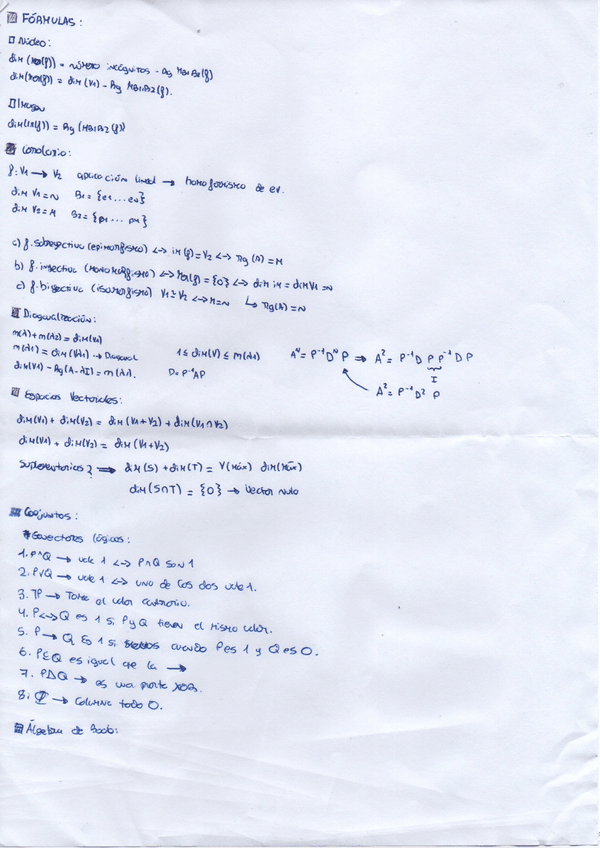 FÓRMULAS:
Núcleo:
dim (Ker(f)) = número incógnitas - Rg MB1B2(f)
dim(Ker(f)) = dim (V1) - Rg MB1B2(f).
Imagen
dim(Im(f)) = Rg (MB1B2(f))
Corolario:
f: V1 → V2 aplicación lineal → homomorfismo de ev.
dim V1 = N B1 = {e1 ... en}
dim V2 = M B2 = {p1 ... pm}
a) f. sobreyectiva (epimorfismo) <-> im(f) = V2 <-> Rg (A) = M
b) f. inyectiva (monomorfismo) <-> Ker(f) = {0} <-> dim im = dim V1 = N
c) f. biyectiva (isomorfismo) V1 ≅ V2 <-> M = N ↳ Rg(A) = N
Diagonalización:
m(λ1) + m(λ2) = dim(V1)
m(λ1) = dim(Vλ1) → Diagonal 1 ≤ dim(V) ≤ m(λ1) A^N = P^-1 D^N P ⇒ A^2 = P^-1 D P P^-1 D P
I
dim(V1) - Rg(A - λI) = m(λ1). D = P^-1AP
A^2 = P^-1 D^2 P
Espacios Vectoriales:
dim(V1) + dim(V2) = dim (V1 + V2) + dim(V1 ∩ V2)
dim(V1) + dim(V2) = dim (V1+V2)
Suplementarios? ⟹ dim (S) + dim(T) = V(máx) dim(máx)
dim (S∩T) = {0} → Vector nulo
Conjuntos:
Conectores lógicos:
1. P^Q → vale 1 <-> P ^ Q son 1
2. PVQ → vale 1 <-> uno de los dos vale 1.
3. 7P → Toma el valor contrario.
4. P<->Q es 1 si P y Q tienen el mismo valor.
5. P → Q Es 1 si menos cuando P es 1 y Q es 0.
6. P≤Q es igual que la →
7. PΔQ → es una puerta XOR.
8. → Columna todo 0.
Álgebra de Boole: